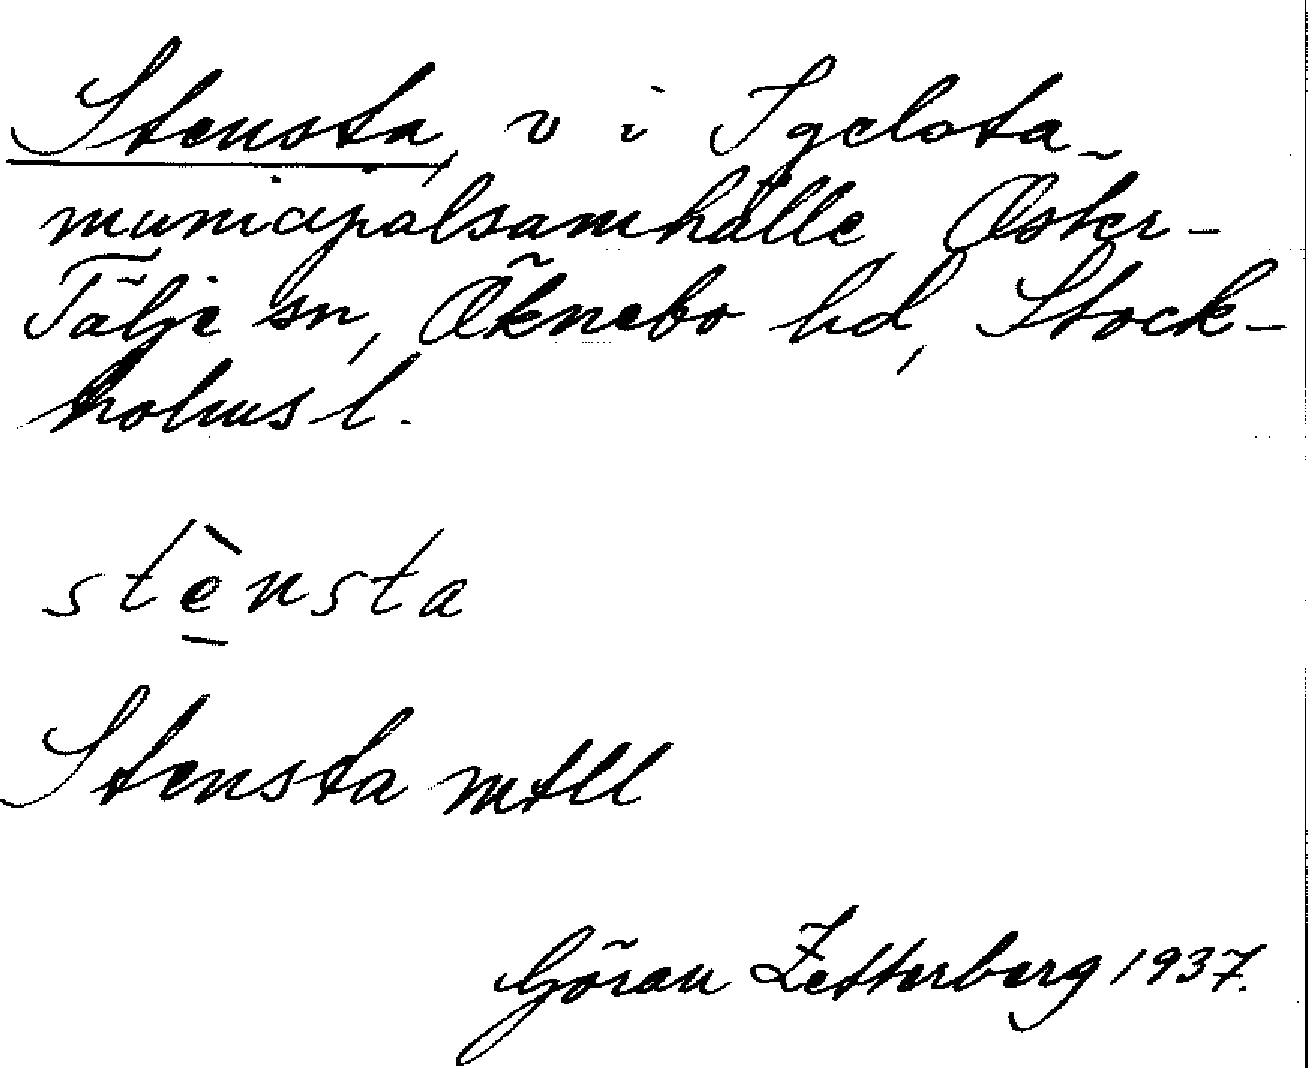 Stensta, v i Igelsta
municipalsamhälle, Öster-
Tälje sn, Öknebo hd, Stock-
holms l.
stènsta
Stensta mtll
Göran Zetterberg 1937.